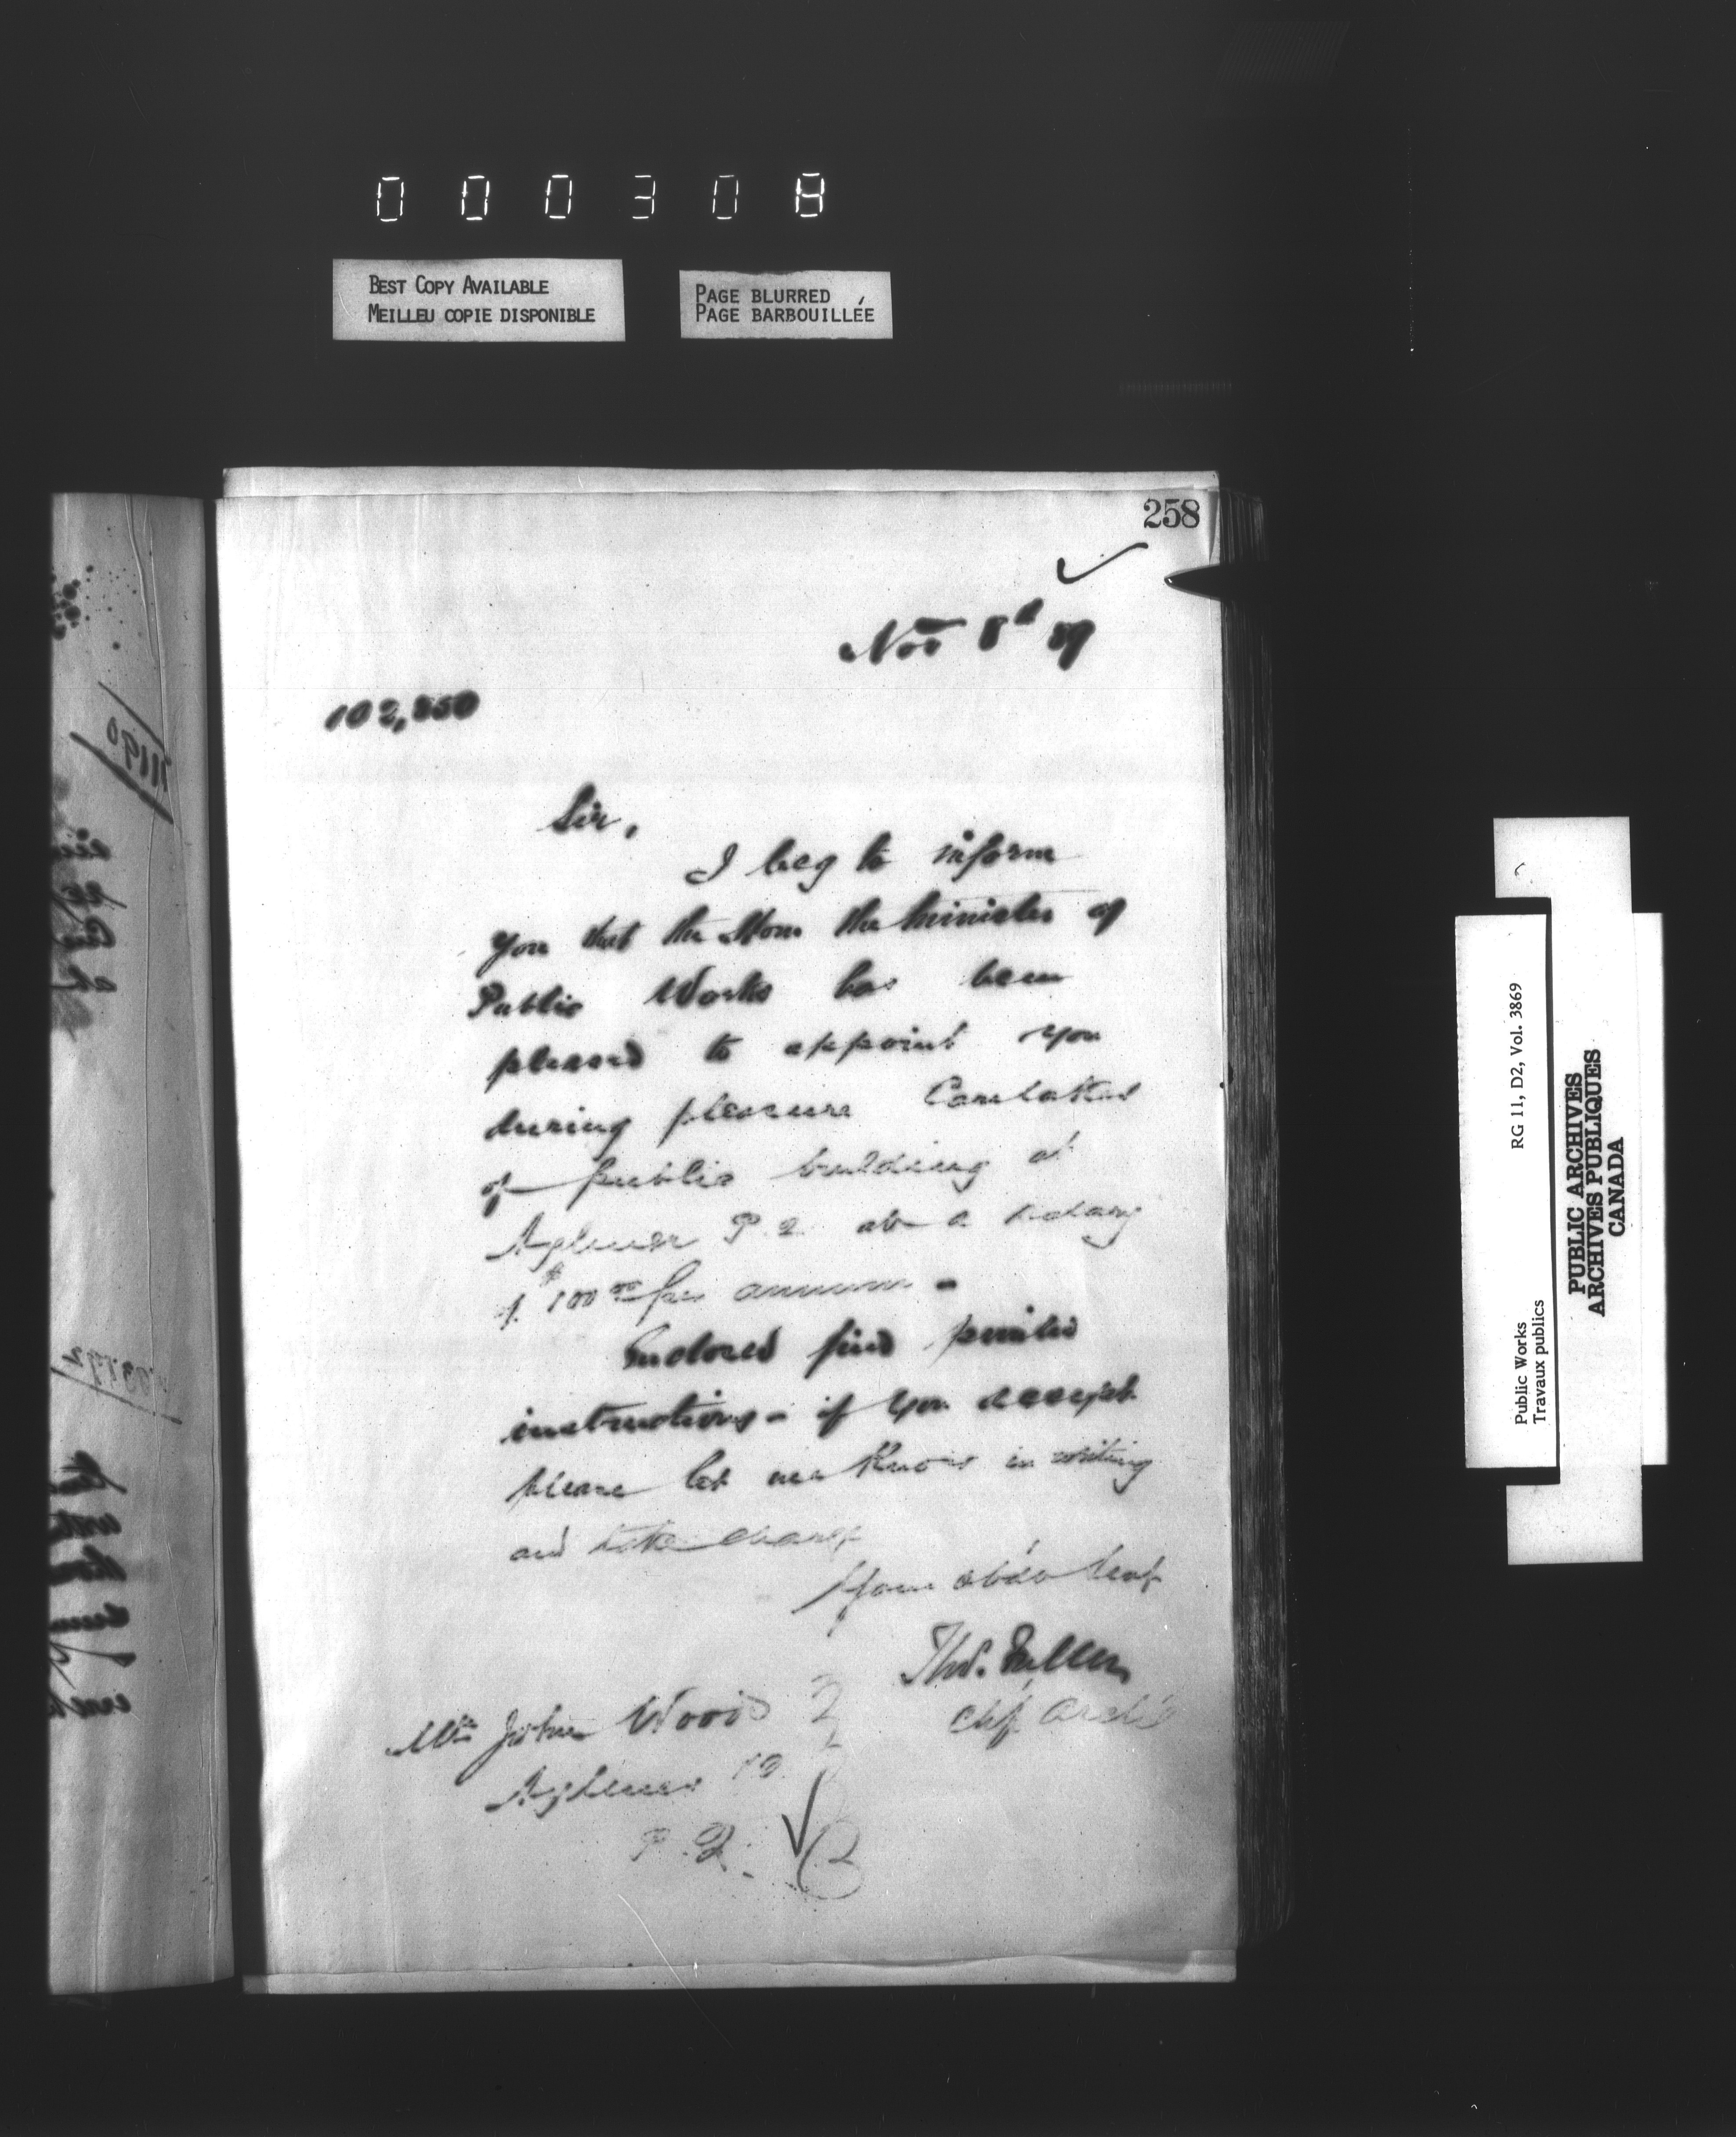 000308
BEST COPY AVAILABLE
MEILLEU COPIE DISPONIBLE
PAGE BLURRED
PAGE BARBOUILLÉE
258
Nov 8th 89
102,850
Sir,
I beg to inform
you that the Hon. the Minister of
Public Works has been
pleased to appoint you
during pleasure Caretaker
of public building at
Aylmer P.Q. at a salary
of $100 00 per annum -
Enclosed find printed
instructions - if you accept
please let me know in writing
and take charge
Your obdt Servt
Thos. Fuller
Chf Archt
Mr John Woods
Aylmer
P.Q.
RG 11, D2, Vol. 3869
Public Works
Travaux publics
PUBLIC ARCHIVES
ARCHIVES PUBLIQUES
CANADA